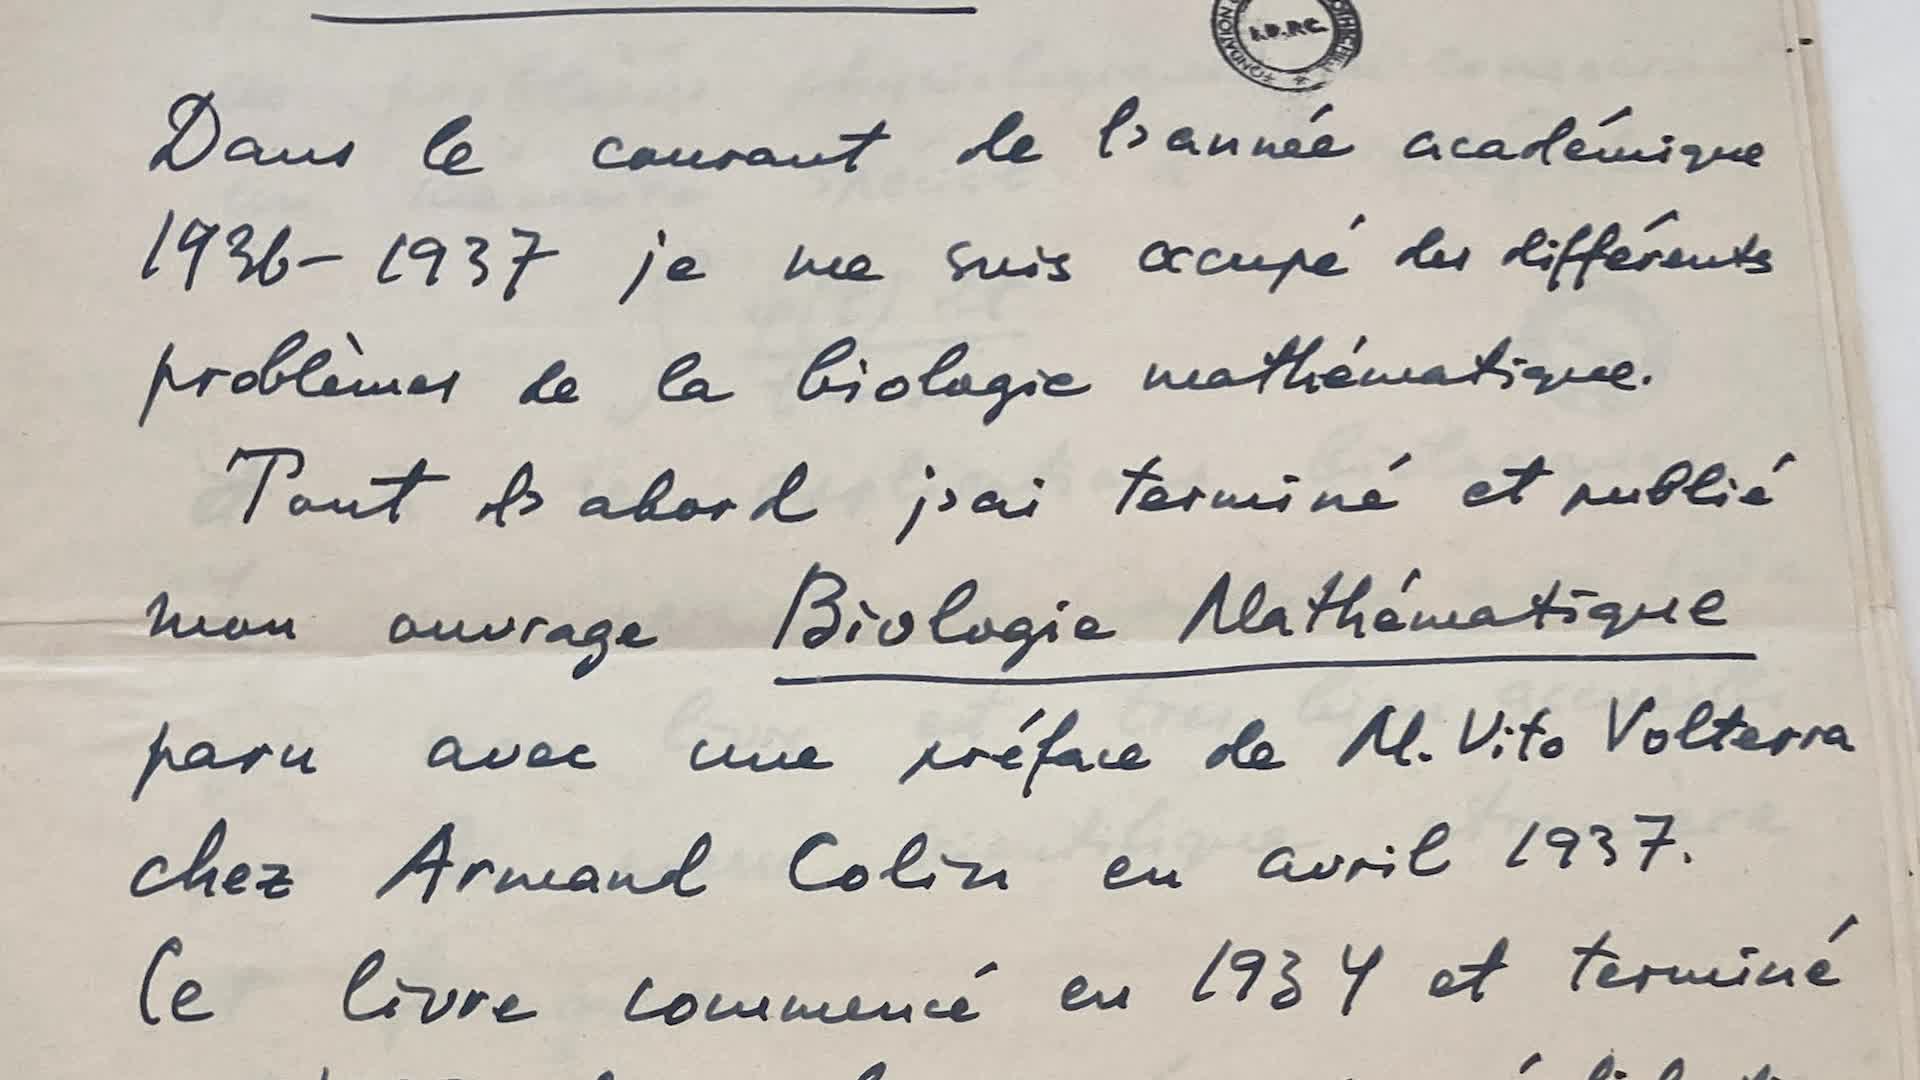 FONDATION
I.D.P.C.
Dans le courant de l'année académique
1936-1937 je me suis occupé des différents
problèmes de la biologie mathématique.
Tout d'abord j'ai terminé et publié
mon ouvrage Biologie Mathématique
paru avec une préface de M. Vito Volterra
chez Armand Colin en avril 1937.
Ce livre commencé en 1934 et terminé